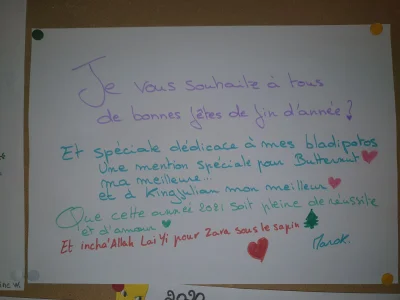 Je vous souhaite à tous
de bonnes fêtes de fin d'année !
Et spéciale dédicace à mes bladipotos
Une mention spéciale pour Buttervant
ma meilleure...
et à Kingjulian mon meilleur
Que cette année 2021 soit pleine de réussite
et d'amour
Et incha'Allah Lai Yi pour Zara sous le sapin
Marok.
2020